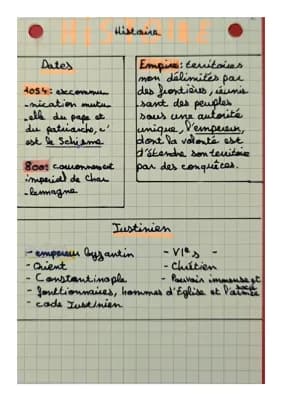 HISTOIRE
Histoire
Dates
1054: excommu
-nication mutu
-elle du pape et
du patriarche, c'
est le Schisme
800: couronnement
impérial de Char
-lemagne
Empire: territoires
non délimités par
des frontières, réunis
-sant des peuples
sous une autorité
unique, l'empereur,
dont la volonté est
d'étendre son territoire
par des conquêtes.
Justinien
- empereur byzantin
- Orient
- Constantinople
- fonctionnaires, hommes d'Église et l'armée
- code Justinien
- VIe s -
- Chrétien
- Pouvoir immense et